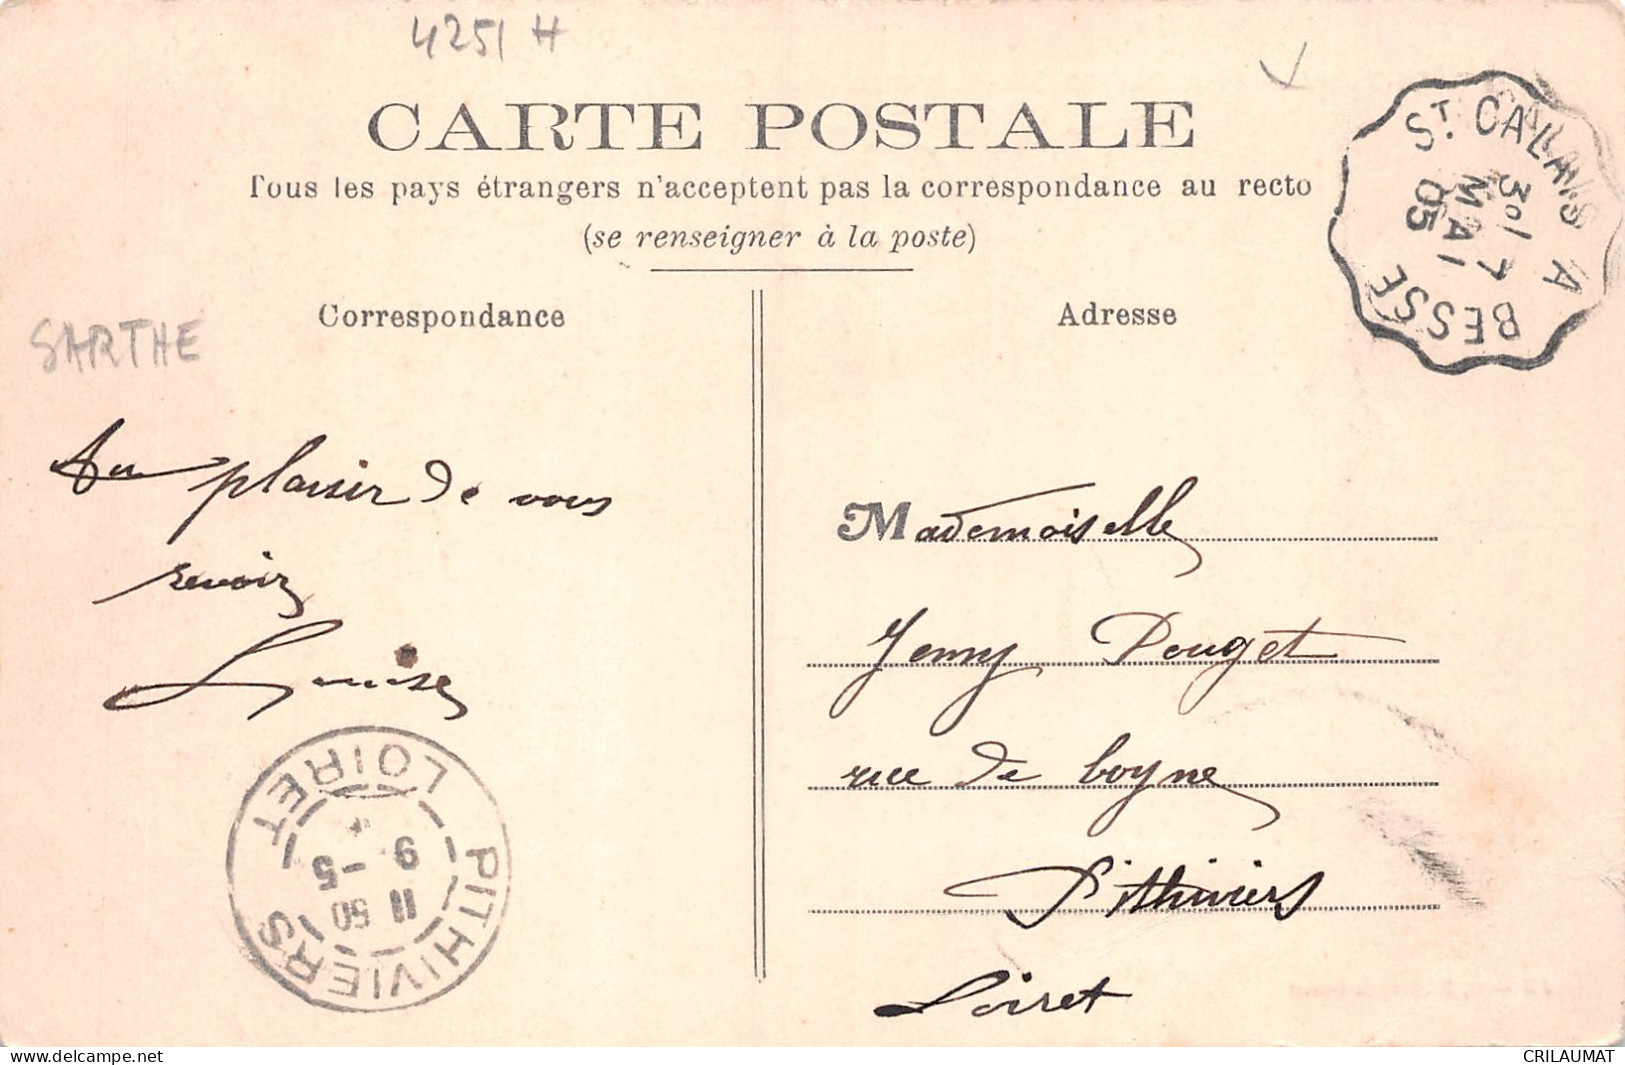 4251 H
CARTE POSTALE
Tous les pays étrangers n'acceptent pas la correspondance au recto
(se renseigner à la poste)
ST CALAIS A BESSE
7
MAI
05
Correspondance
Adresse
SARTHE
Au plaisir de vous
revoir
Louise
Mademoiselle
Jemy Pouget
rue de boyne
Pithiviers
Loiret
PITHIVIERS
LOIRET
11 50
9 -5
www.delcampe.net
CRILAUMAT